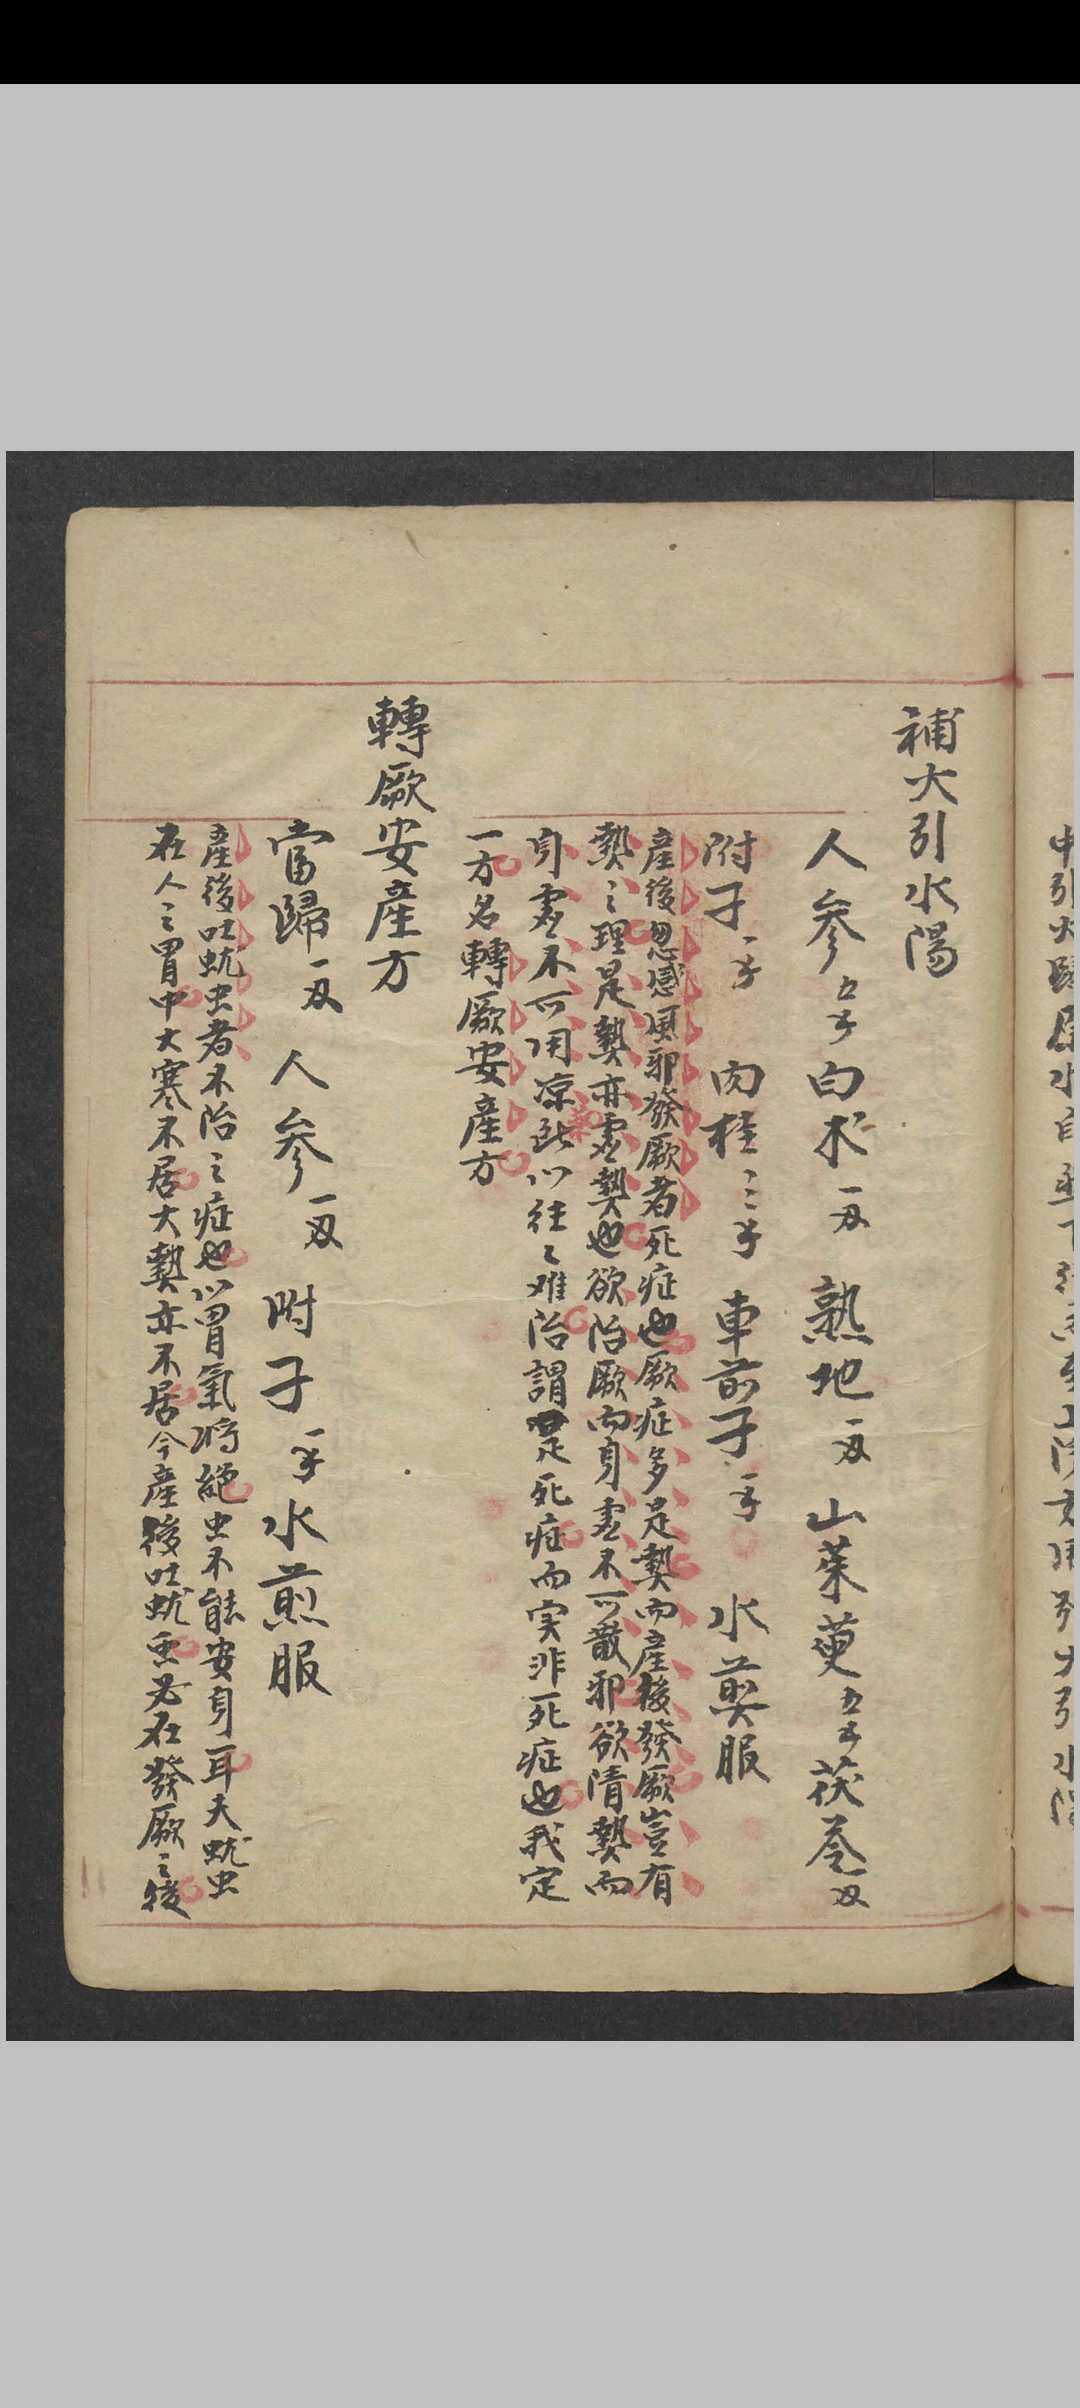 補火引水陽
人參五錢 白朮一两 熟地一两 山茱萸五錢 茯苓一两
附子一錢 肉桂三錢 車前子一錢 水煎服
產後忽感風邪發厥者死症也厥症多是熱而產後發厥豈有
熱之理是熱亦虛熱也欲治厥而身虛不可散邪欲清熱而
身虛不可用凉药此以往々难治謂是死症而实非死症也我定
一方名轉厥安產方
轉厥安產方
當歸一两 人參一两 附子一錢 水煎服
產後吐蚘虫者不治之症也以胃氣将絕虫不能安身耳夫蚘虫
在人之胃中大寒不居大熱亦不居今產後吐蚘虫必在發厥之後